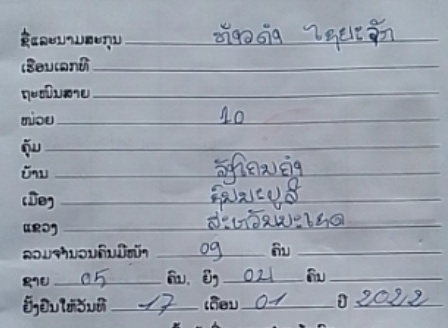 ຊື່ແລະນາມສະກຸນ ທ້າວຄຳ ໄຊຍະຈັກ
ເຮືອນເລກທີ
ຖະໜົນສາຍ
ໜ່ວຍ 10
ຄຸ້ມ
ບ້ານ
ເມືອງ ຊົນນະບູລີ
ແຂວງ ສະຫວັນນະເຂດ
ລວມຈຳນວນຄົນມີໜ້າ 09 ຄົນ
ຊາຍ 05 ຄົນ, ຍິງ 04 ຄົນ
ຢັ້ງຢືນໃຫ້ວັນທີ 17 ເດືອນ 01 ປີ 2022